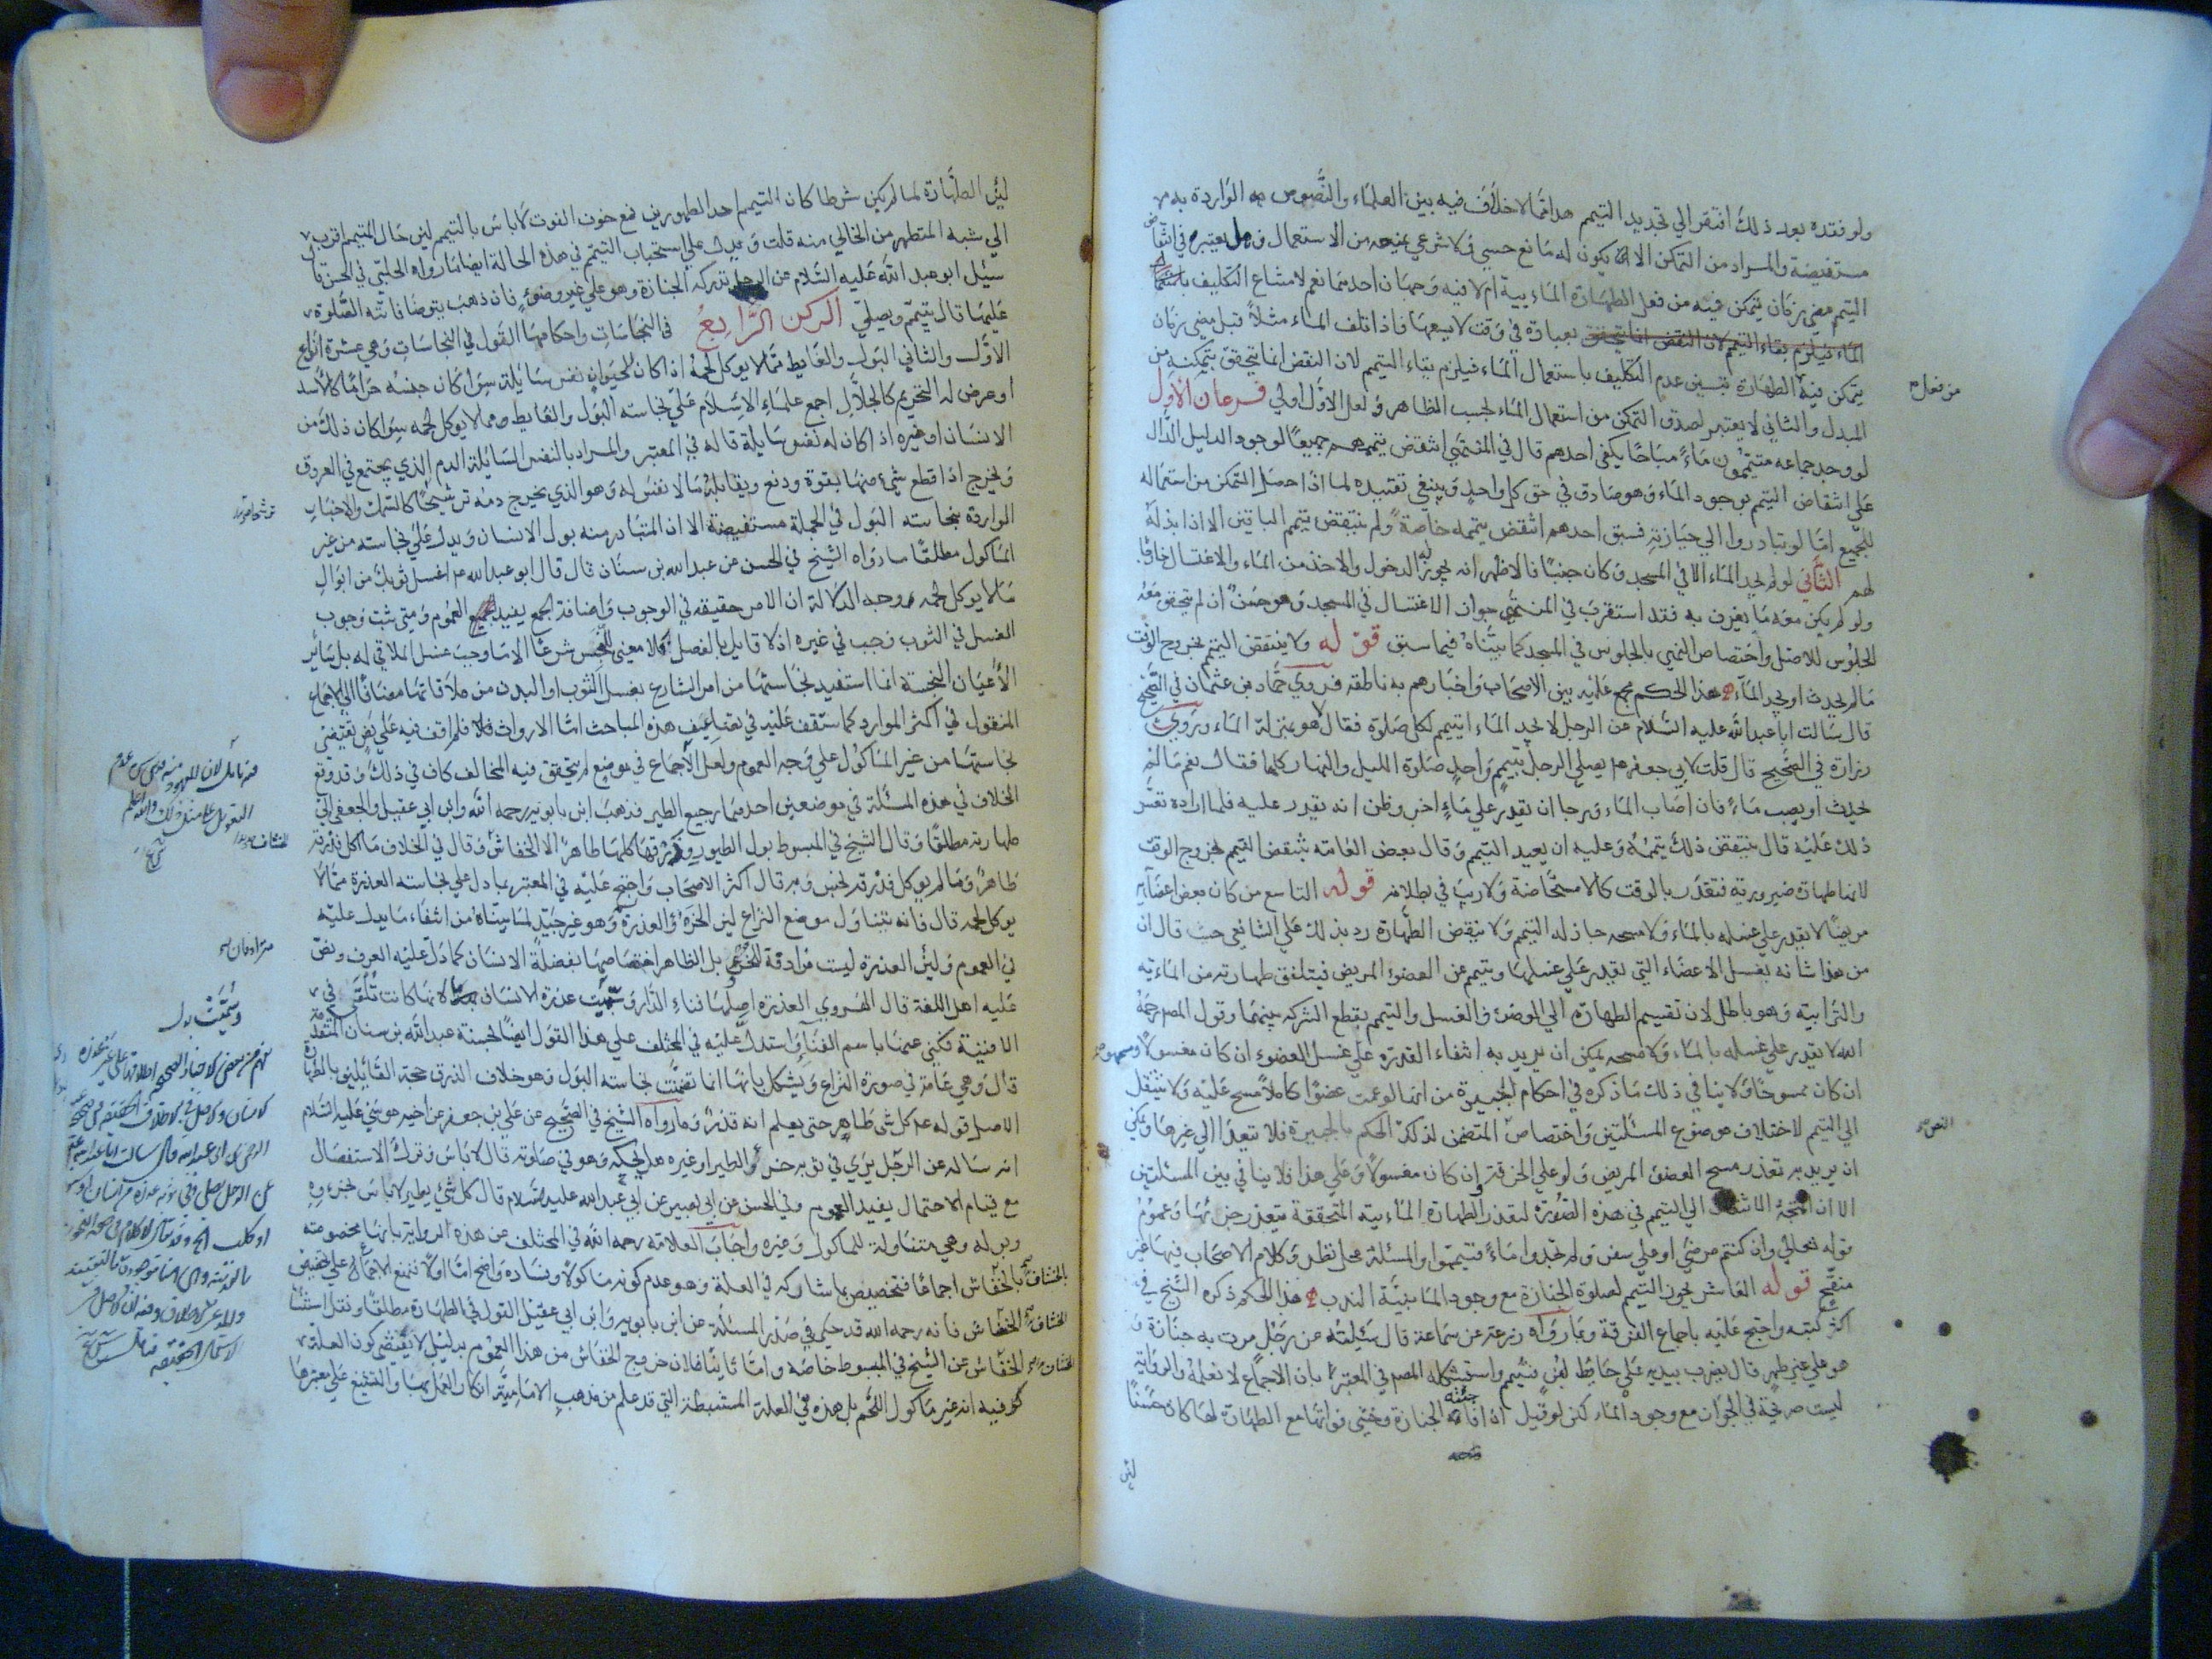 ولو فقده بعد ذلك افتقر الي تجديد التيمم هذا مما لا خلاف فيه بين العلماء والنصوص به الواردة به
مستفيضة والمراد من التمكن الا يكون له مانع حسي ولا شرعي يمنعه من الاستعمال وهل يعتبر في انتقاض
التيمم مضي زمان يتمكن فيه من فعل الطهارة المائية ام لا فيه وجهان احدهما نعم لامتناع التكليف باستعمال
الماء فيلزم بقاء التيمم لان النقض انما يتحقق بعبادة في وقت لا يسعها فاذا تلف الماء مثلا قبل مضي زمان
يتمكن فيه الطهارة تبين عدم التكليف باستعمال الماء فيلزم بقاء التيمم لان النقض انما يتحقق بتمكنه من
المبدل والثاني لا يعتبر لصدق التمكن من استعمال الماء بحسب الظاهر ولعل الاول اولي فرعان الاول
لو وجد جماعة متيممون ماء مباحا يكفي احدهم قال في المنتهي انتقض تيممهم جميعا لوجود الدليل الدال
علي انتقاض التيمم بوجود الماء وهو صادق في حق كل واحد وينبغي تقييده لما اذا حصل التمكن من استعماله
للجميع اما لو تبادروا الي حيازته فسبق احدهم انتقض تيممه خاصة ولم ينتقض تيمم الباقين الا اذا بذله
لهم الثاني لو لم يجد الماء الا في المسجد وكان جنبا فالاظهر انه يجوز له الدخول والاخذ من الماء والاغتسال خارجا
ولو لم يكن معه ما يغرف به فقد استقرب في المنتهي جواز الاغتسال في المسجد وهو حسن ان لم يتحقق معه
الجلوس للاصل واختصاص النهي بالجلوس في المسجد كما بيناه فيما سبق قوله ولا ينتقض التيمم بخروج الوقت
مالم يحدث او يجد الماء هذا الحكم مجمع عليه بين الاصحاب واخبارهم به ناطقه فروي حماد بن عثمان في الصحيح
قال سالت ابا عبد الله عليه السلام عن الرجل لا يجد الماء ايتيمم لكل صلوة فقال لا هو بمنزلة الماء وروي
زرارة في الصحيح قال قلت لابي جعفر يصلي الرجل بتيمم واحد صلوة الليل والنهار كلها فقال نعم مالم
يحدث او يصب ماء فان اصاب الماء ورجا ان يقدر علي ماء اخر وظن انه يقدر عليه فلما اراده تعسر
ذلك عليه قال ينتقض ذلك تيممه وعليه ان يعيد التيمم وقال بعض العامه ينتقض التيمم بخروج الوقت
لانها طهارة ضرورية فتقدر بالوقت كالمستحاضة ولا ريب في بطلانه قوله التاسع من كان بعض اعضايه
مريضا لا يقدر علي غسله بالماء ولا مسحه جاز له التيمم ولا يتبعض الطهارة رد بذلك علي الشافعي حيث قال ان
من هذا شانه يغسل الاعضاء التي يقدر علي غسلها ويتيمم عن العضو المريض فيتلفق طهارته من المائيه
والترابيه وهو باطل لان تقسيم الطهارة الي الوضو والغسل والتيمم يقطع الشركه بينهما وقول المصر رحمه
الله لا يقدر علي غسله بالماء ولا مسحه يمكن ان يريد به انتفاء القدرة علي غسل العضو ان كان مغسولا ومسحه
ان كان ممسوحا ولا ينافي ذلك ما ذكره في احكام الجبيرة من انها لو عمت عضوا كاملا مسح عليه ولا ينتقل
الي التيمم لاختلاف موضوع المسئلتين واختصاص المتضمن لذلك الحكم بالجبيرة فلا يتعدا الي غيرها ويمكن
ان يريد به تعذر مسح العضو المريض ولو علي الخرقة وان كان مغسولا وعلي هذا فلا ينافي بين المسئلتين
الا ان المتجه الانتقال الي التيمم في هذه الصورة لتعذر الطهارة المائيه المتحققة بتعذر جزئها وعموم
قوله تعالي وان كنتم مرضي او علي سفر ولم تجدوا ماء فتيمموا والمسئلة محل نظر وكلام الاصحاب فيها غير
منقح قوله العاشر يجوز التيمم لصلوة الجنازة مع وجود الماء بنية الندب هذا الحكم ذكره الشيخ في
اكثر كتبه واحتج عليه باجماع الفرقة وبما رواه زرعة عن سماعة قال سئلته عن رجل مرت به جنازة و
هو علي غير طهر قال يضرب بيديه علي حايط لبن فيتيمم واستشكله المصر في المعتبر بان الاجماع لا نعلمه والرواية
ليست صريحة في الجواز مع وجود الماء لكن لو قيل اذا فاجئته الجنازة وخشي فواتها مع الطهارة لها كان حسنا
لئن
من فعل
النص
لئن الطهارة لما لم يكن شرطا كان التيمم احد الطهورين فمع خوف الفوت لا باس بالتيمم لئن حال المتيمم اقرب
الي شبه المتطهر من الخالي منه قلت ويدل علي استحباب التيمم في هذه الحالة ايضا ما رواه الحلبي في الحسن قال
سئل ابو عبد الله عليه السلام عن الرجل تدركه الجنازة وهو علي غير وضوء فان ذهب يتوضا فاتته الصلوة
عليها قال يتيمم ويصلي الركن الرابع في النجاسات واحكامها القول في النجاسات وهي عشرة انواع
الاول والثاني البول والغايط مما لا يوكل لحمه اذا كان للحيوان نفس سائلة سوا كان جنسه حراما كالاسد
او عرض له التحريم كالجلال اجمع علماء الاسلام علي نجاسته البول والغايط مما لا يوكل لحمه سوا كان ذلك من
الانسان او غيره اذا كان له نفس سايلة قاله في المعتبر والمراد بالنفس السائلة الدم الذي يجتمع في العروق
ويخرج اذا قطع شيء منها بقوة ودفع ويقابله ما لا نفس له وهو الذي يخرج دمه ترشيحا كالسمك والاخبار
الواردة بنجاسته البول في الجملة مستفيضة الا ان المتبادر منه بول الانسان ويدل علي نجاسته من غير
الماكول مطلقا ما رواه الشيخ في الحسن عن عبد الله بن سنان قال قال ابو عبد الله اغسل ثوبك من ابوال
ما لا يوكل لحمه ووجه الدلالة ان الامر حقيقه في الوجوب واضافة الجمع يفيد العموم ومتي ثبت وجوب
الغسل في الثوب وجب في غيره اذ لا قايل بالفصل ولا معني للنجس شرعا الا ما وجب غسل الملاقي له بل سائر
الاعيان النجسة انما استفيد نجاستها من امر الشارع بغسل الثوب او البدن من ملاقاتها مضافا الي الاجماع
المنقول في اكثر الموارد كما ستقف عليه في تضاعيف هذه المباحث اما الارواث فلا فلم اقف فيه علي نص يقتضي
نجاستها من غير الماكول علي وجه العموم ولعل الاجماع في موضع لم يتحقق فيه المخالف كاف في ذلك وقد وقع
الخلاف في هذه المسئلة في موضعين احدهما رجيع الطير فذهب ابن بابويه رحمه الله وابن ابي عقيل والجعفي الي
طهارته مطلقا وقال الشيخ في المبسوط بول الطيور وذرقها كلها طاهر الا الخفاش وقال في الخلاف ما اكل فذرقه
طاهر وما لم يوكل فذرقه نجس وبه قال اكثر الاصحاب واحتج عليه في المعتبر بما دل علي نجاسته العذرة مما لا
يوكل لحمه قال فانه يتناول موضع النزاع لئن الخرء والعذرة وهو غير جيد لما بيناه من انتفاء ما يدل عليه
في العموم ولئن العذرة ليست مرادفة للخرء بل الظاهر اختصاصها بفضلة الانسان كما دل عليه العرف ونص
عليه اهل اللغة قال الهروي العذرة اصلها فناء الدار وسميت عذرة الانسان بها لانها كانت تلقي في
الافنية فكني عنها باسم الفناء واستدل عليه في المختلف علي هذا القول ايضا بحسنة عبد الله بن سنان المتقدمة
قال وهي عامة في صورة النزاع ويشكل بانها انما تضمنت نجاسته البول وهو خلاف الذرق حجة القائلين بالطهارة
الاصل قوله كل شي طاهر حتي يعلم انه قذر وما رواه الشيخ في الصحيح عن علي بن جعفر عن اخيه موسي عليه السلام
انه ساله عن الرجل يري في ثوبه خرء الطير او غيره هل يحكه وهو في صلوته قال لا باس وترك الاستفصال
مع قيام الاحتمال يفيد العموم وفي الحسن عن ابي بصير عن ابي عبد الله عليه السلام قال كل شيء يطير لا باس بخرءه
وبوله وهي متناولة للماكول وغيره واجاب العلامة رحمه الله في المختلف عن هذه الرواية بانها مخصوصه
بالخفاش اجماعا فتختص بما شاركه في العلة وهو عدم كونه ماكولا وفساده واضح اما اولا فلمنع الاجماع علي تخصيص
الخفاش فانه رحمه الله قد حكي في صدر المسئلة عن ابن بابويه وابن ابي عقيل القول في الطهارة مطلقا ونقل استثناء
الخفاش عن الشيخ في المبسوط خاصة واما ثانيا فلان خروج الخفاش من هذا العموم بدليل لا يقتضي كون العلة
كو فيه انه غير ماكول اللحم بل هذه هي العلة المستنبطة التي قد علم من مذهب الامامية انكار العمل بها والتشنيع علي معتبرها
مترادفان
وسميت بدل
الخشاف
بالخشاف
الخشاف
الخشاف